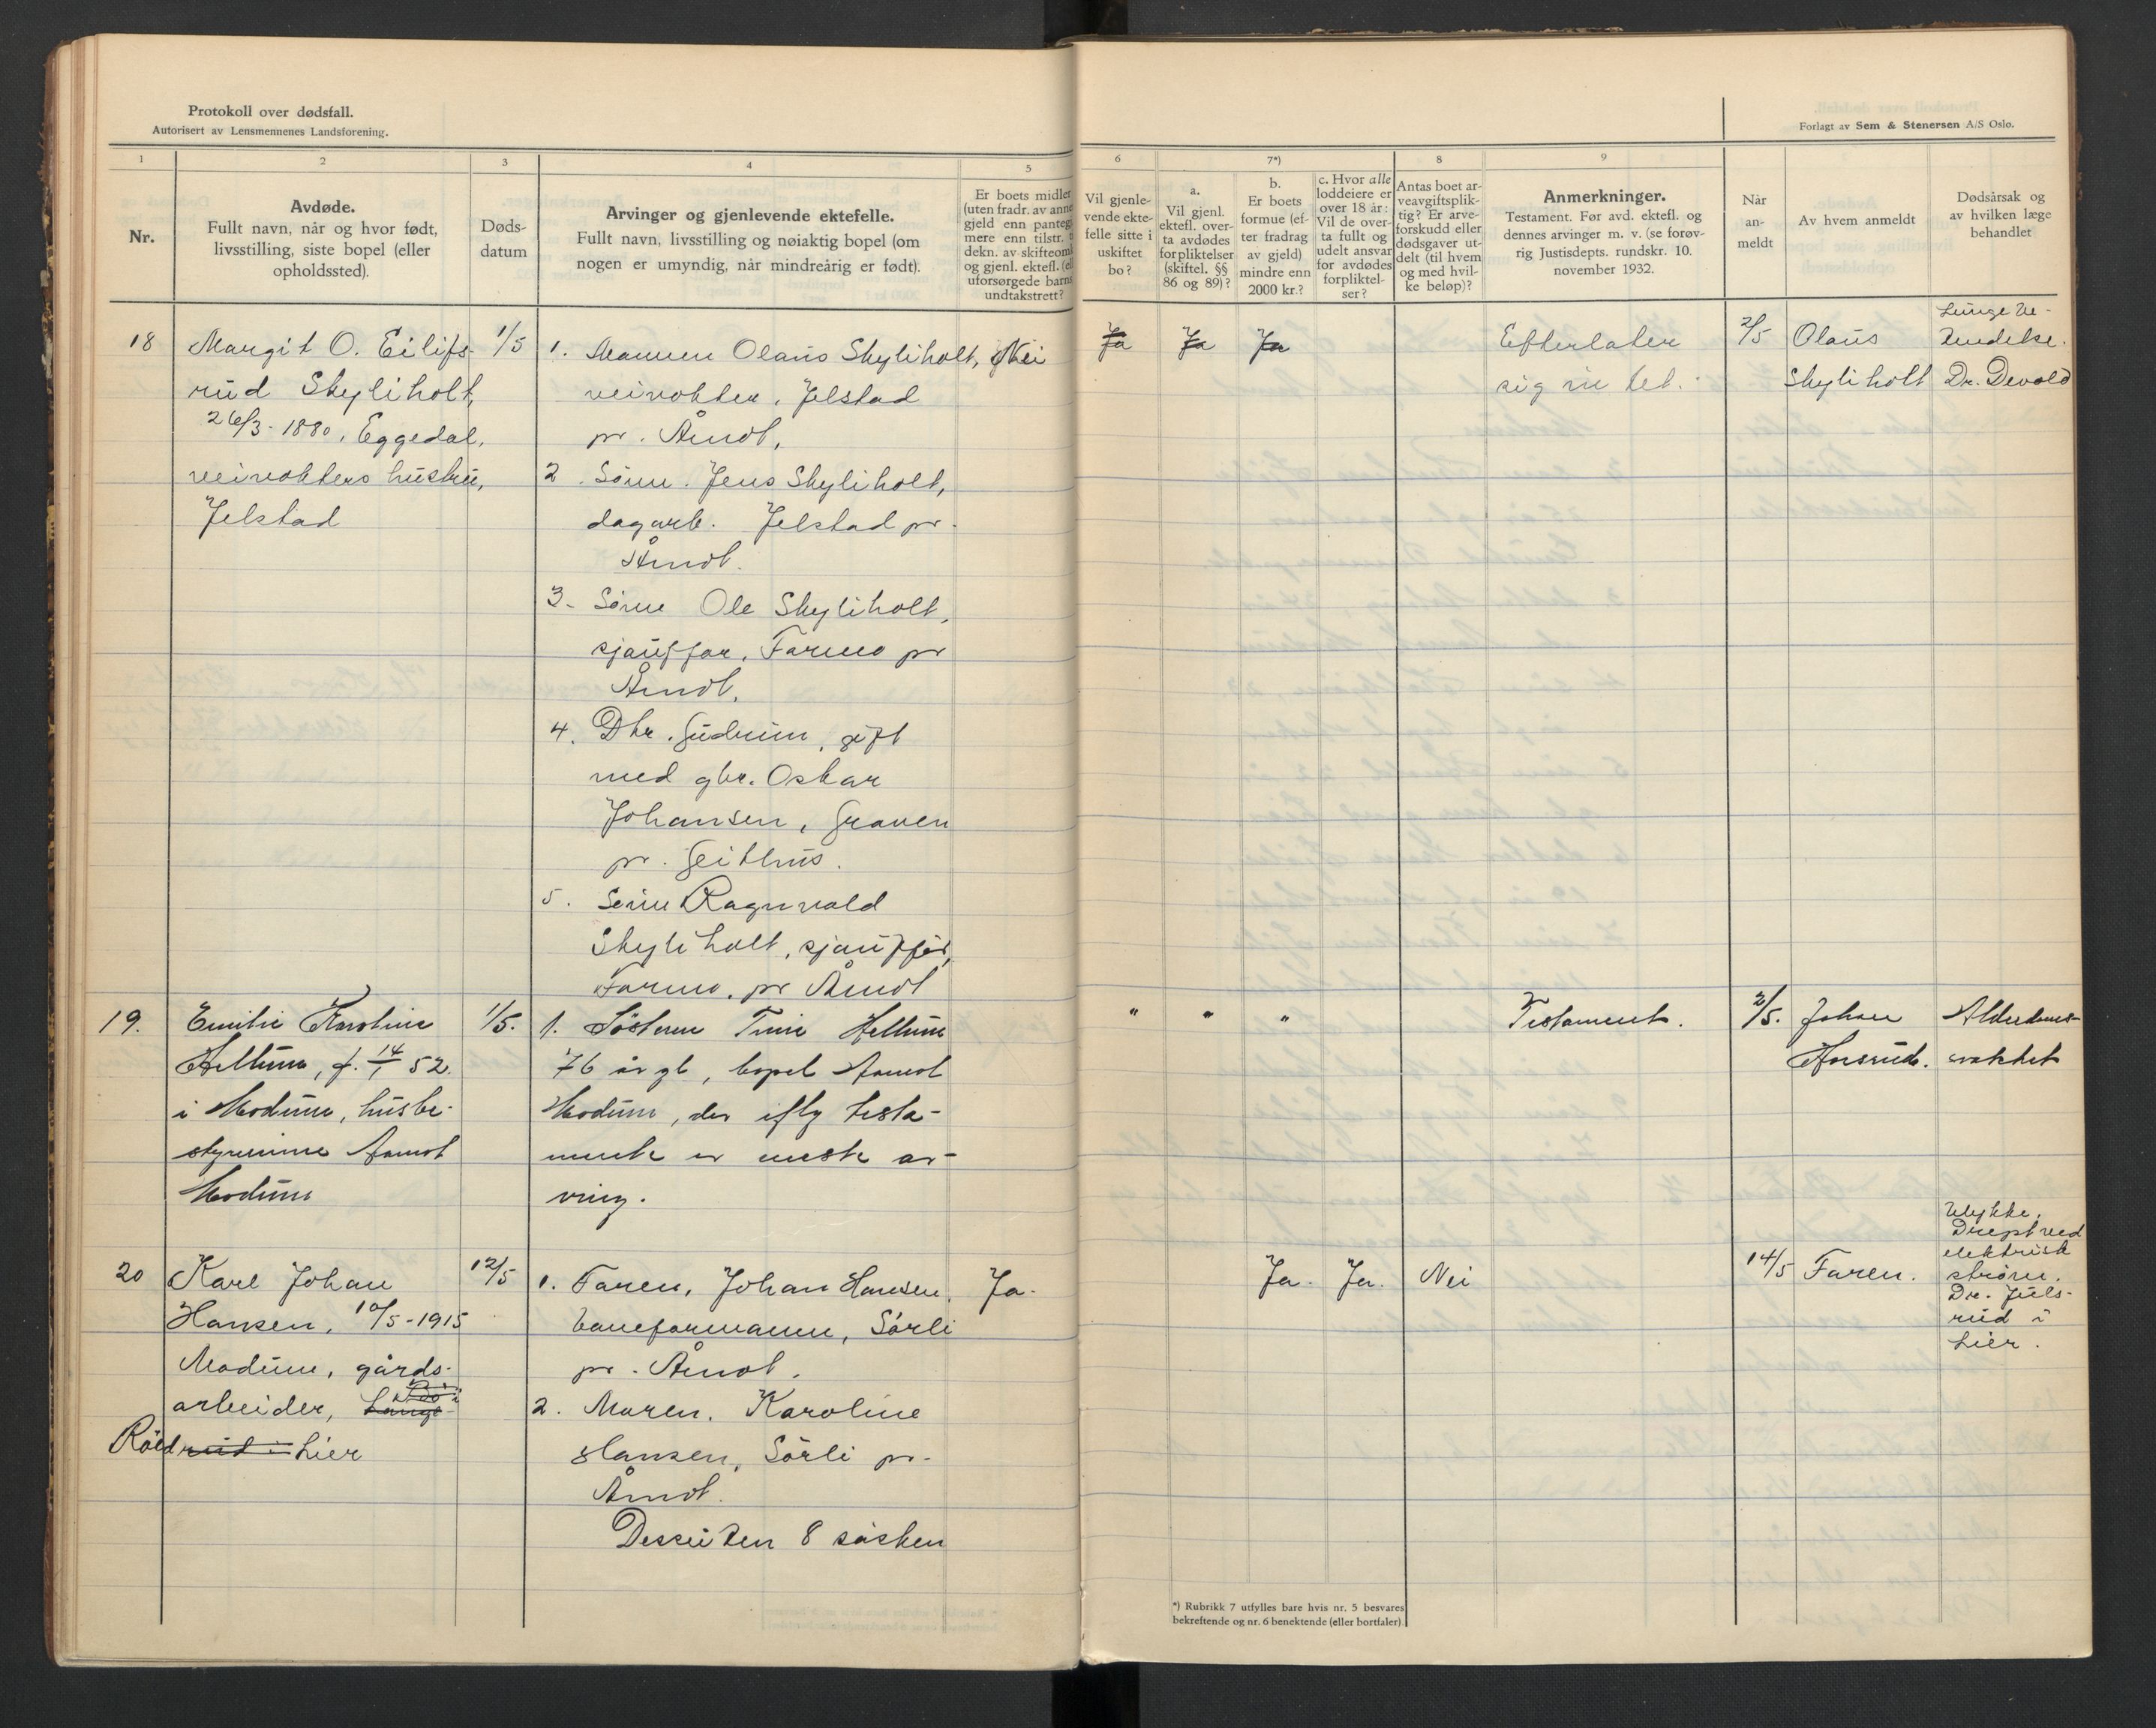 Protokoll over dødsfall.
Autorisert av Lensmennenes Landsforening.
Forlagt av Sem & Stenersen A/S Oslo.
1
Nr.
2
Avdøde.
Fullt navn, når og hvor født,
livsstilling, siste bopel (eller
opholdssted).
3
Døds-
datum
4
Arvinger og gjenlevende ektefelle.
Fullt navn, livsstilling og nøiaktig bopel (om
nogen er umyndig, når mindreårig er født).
5
Er boets midler
(uten fradr. av anne
gjeld enn panteg
mere enn tilstr. t
dekn. av skifteom
og gjenl. ektefl. (el
uforsørgede barns
undtakstrett?
6
Vil gjenle-
vende ekte-
felle sitte i
uskiftet
bo?
7*)
a.
Vil gjenl.
ektefl. over-
ta avdødes
forpliktelser
(skiftel. §§
86 og 89)?
b.
Er boets
formue (ef-
ter fradrag
av gjeld)
mindre enn
2000 kr.?
c. Hvor alle
loddeiere er
over 18 år:
Vil de over-
ta fullt og
udelt ansvar
for avdødes
forpliktel-
ser?
8
Antas boet ar-
veavgiftsplik-
tig? Er arve-
forskudd eller
dødsgaver ut-
delt (til hvem
og med hvil-
ke beløp)?
9
Anmerkninger.
Testament. Før avd. ektefl. og
dennes arvinger m. v. (se forøv-
rig Justisdepts. rundskr. 10.
november 1932.
Når
an-
meldt
Av hvem anmeldt
Dødsårsak og
av hvilken læge
behandlet
18
Margit O. Eilifs-
rud Skyliholt,
26/3-1880, Eggedal,
veivokters hustru,
Jelstad
1/5
1. Mannen Olaus Skyliholt,
veivokter, Jelstad
pr. Åmot,
2. Sønn. Jens Skyliholt,
dagarb. Jelstad pr.
Åmot.
3. Sønn Ole Skyliholt,
sjauffør, Farmo pr
Åmot.
4. Dtr. Gudrun, gift
med gbr. Oskar
Johansen, Graven
pr. Geithus.
5. Sønn Ragnvald
Skyliholt, sjauffør,
Farmo. pr Åmot
Nei
Ja
Ja
Ja
Efterlater
sig intet.
2/5
Olaus
Skyliholt
Lungebe-
tendelse.
Dr. Devold
19.
Emilie Karoline
Hellum, f. 14/1 52.
i Modum, husbe-
styrerinne Aamot
Modum
1/5.
1. Søsteren Tine Hellum
76 år gl, bopel Aamot
Modum, der iflg testa-
mente er eneste ar-
ving.
"
"
"
Testament.
2/5.
Johan
Horsrud.
Alderdoms-
svakhet
20
Karl Johan
Hansen, 10/5-1915
Modum, gårds-
arbeider, Lange-
Röed rud i Lier
12/5
1. Faren, Johan Hansen,
baneformann, Sørli
pr. Åmot.
2. Moren, Karoline
Hansen, Sørli pr.
Åmot.
Dessuten 8 søsken
Ja.
Ja.
Ja.
Nei
14/5
Faren.
Ulykke.
Drept ved
elektrisk
strøm.
Dr. Juls-
rud i
Lier.
*) Rubrikk 7 utfylles bare hvis nr. 5 besvares
bekreftende og nr. 6 benektende (eller bortfaler).